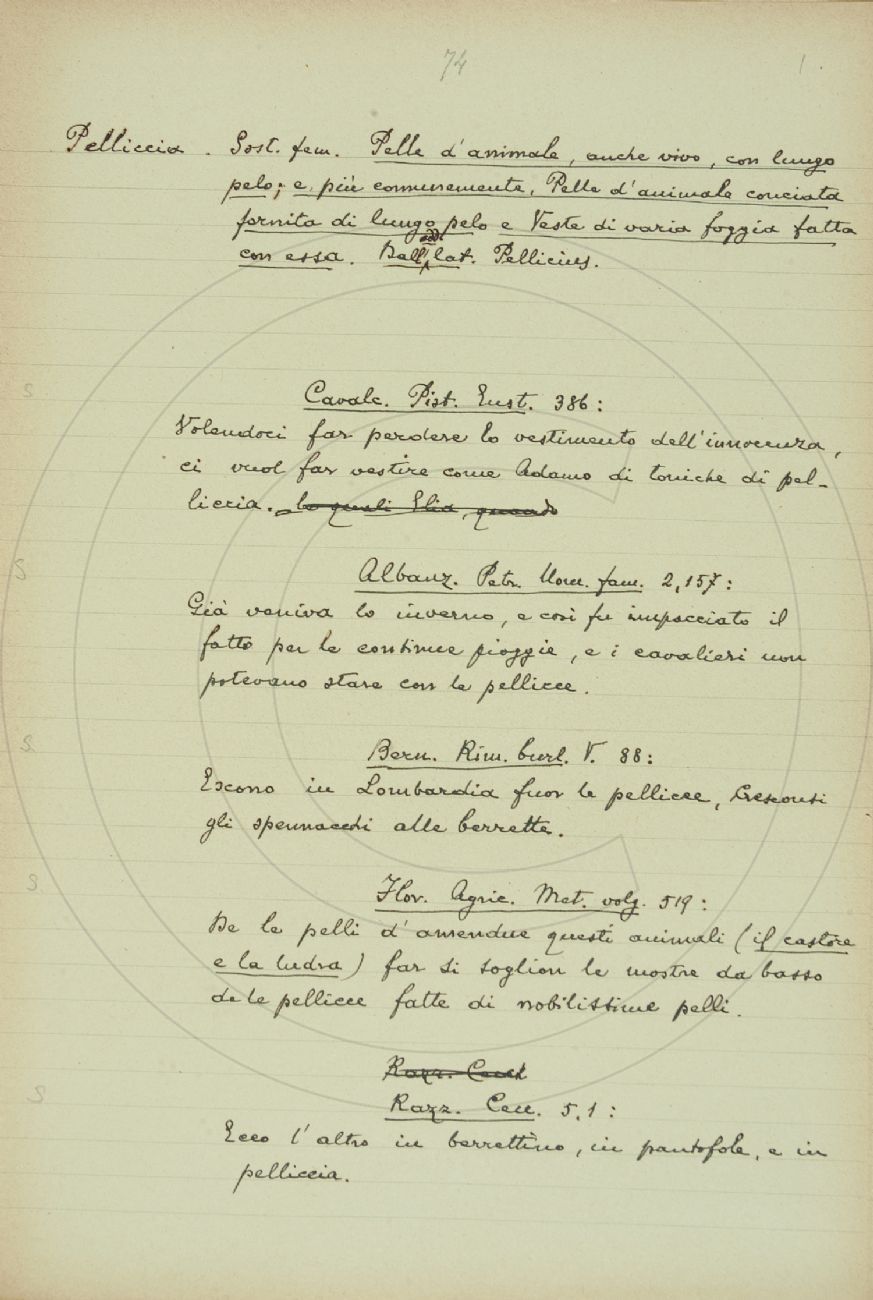 74
1.
Pelliccia. Sost. fem. Pelle d'animale, anche vivo, con lungo
pelo; e, più comunemente, Pelle d'animale conciata
fornita di lungo pelo e Veste di varia foggia fatta
con essa. Dall' add. lat. Pellicius.
Cavalc. Pist. Eust. 386:
Volendoci far perdere lo vestimento dell'innocenza,
ci vuol far vestire come Adamo di toniche di pel-
liccia. lo quali Elia, quando
S
Albanz. Petr. Uom. fam. 2,157:
Già veniva lo inverno, e così fu impacciato il
fatto per le continue pioggie, e i cavalieri non
potevano stare con le pellicce.
S
Bern. Rim. burl. V. 88:
Escono in Lombardia fuor le pellicce, Cresconsi
gli spennacchi alle berrette.
S
Flor. Agric. Met. volg. 519:
De le pelli d'amendue questi animali (il castore
e la ludra) far si soglion le mostre da basso
de le pellicce fatte di nobilissime pelli.
S
Razz. Cecc
Razz. Cecc. 5.1:
Ecco l'altro in berrettino, in pantofole, e in
pelliccia.
S